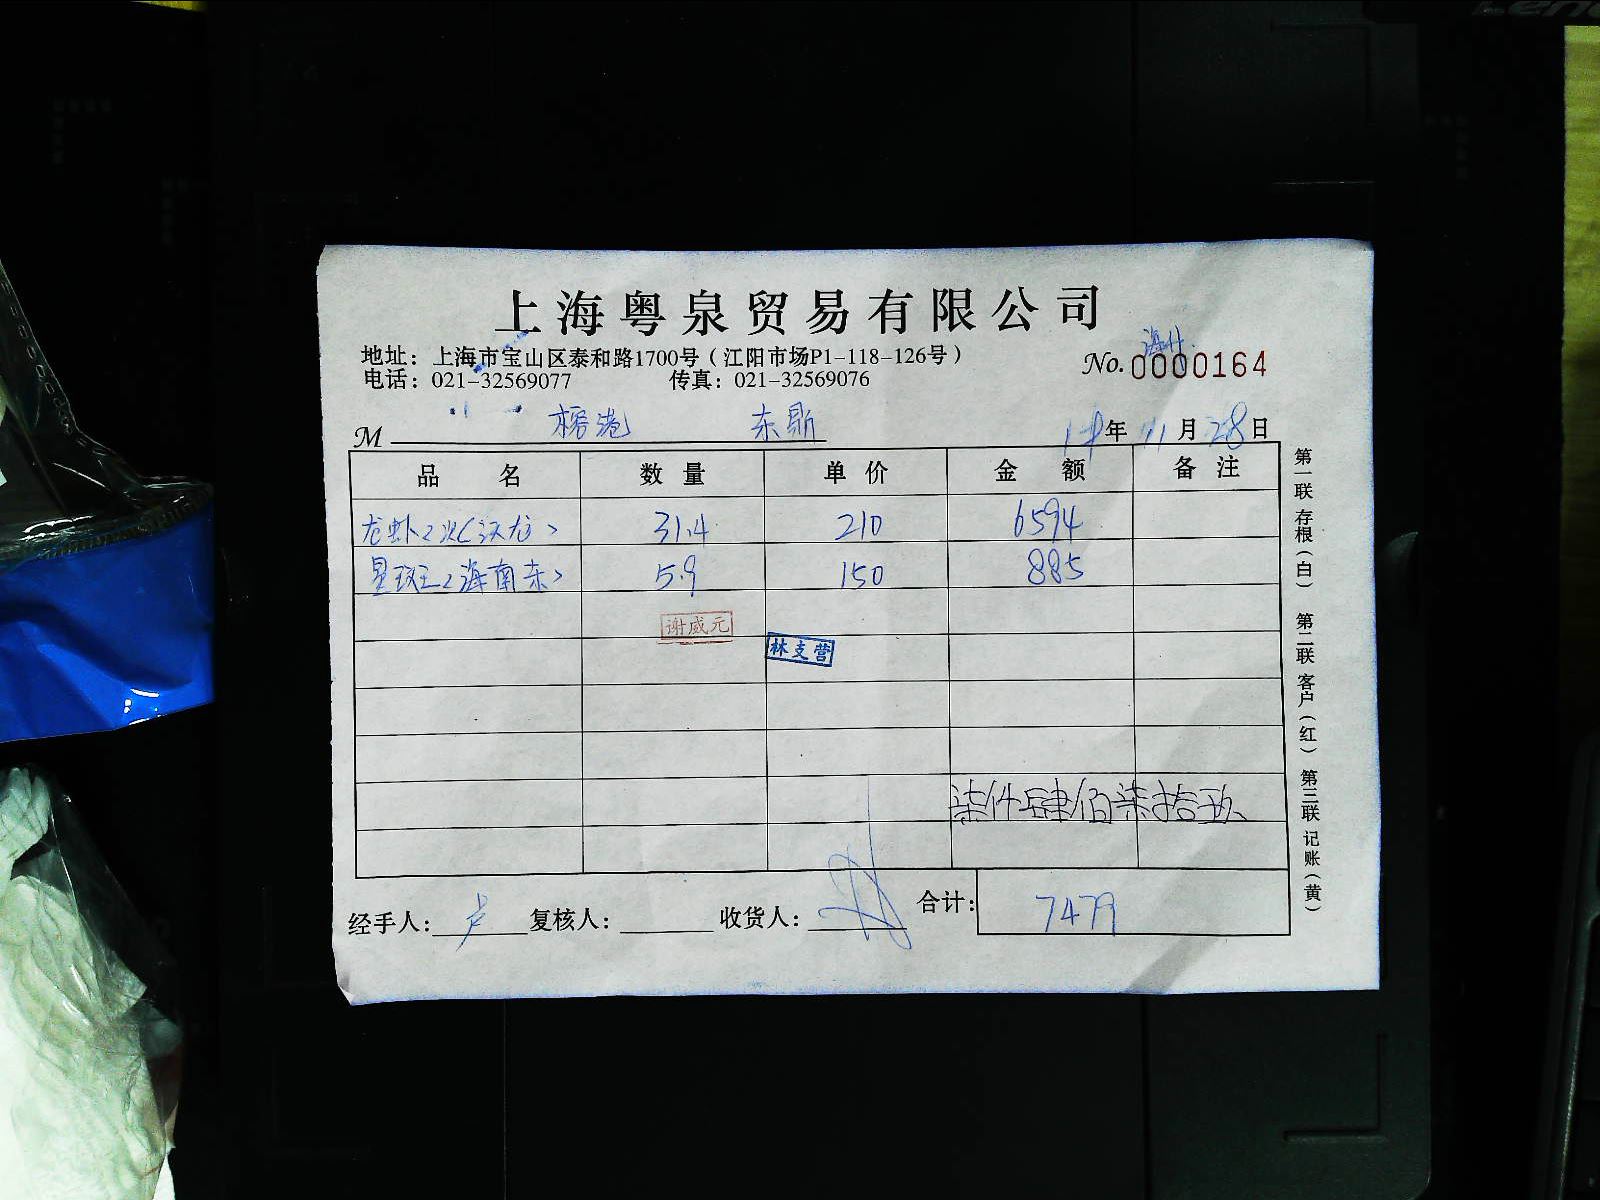 上海粤泉贸易有限公司
地址：上海市宝山区泰和路1700号（江阳市场P1-118-126号）
电话：021-32569077 传真：021-32569076
No.0000164
M 榕港 东鼎
年 11 月 28 日
品名 数量 单价 金额 备注
龙虾 31.4 210 6594
星斑 5.9 150 885
谢威元
林支营
柒仟肆佰柒拾玖
经手人：卢 复核人： 收货人： 合计：7479
第一联 存根（白） 第二联 客户（红） 第三联 记账（黄）